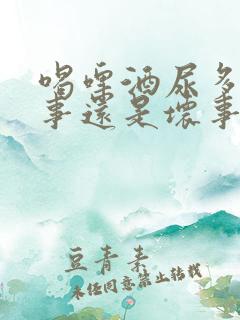 喝啤酒尿多
事还是坏事
豆青素
未经同意禁止转载